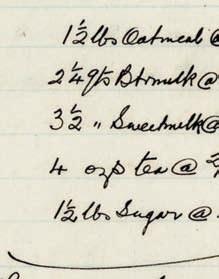 1½ lbs Oatmeal @
2¼ qts Btrmilk @
3½ " Sweetmilk @
4 ozs tea @
1½ lbs Sugar @